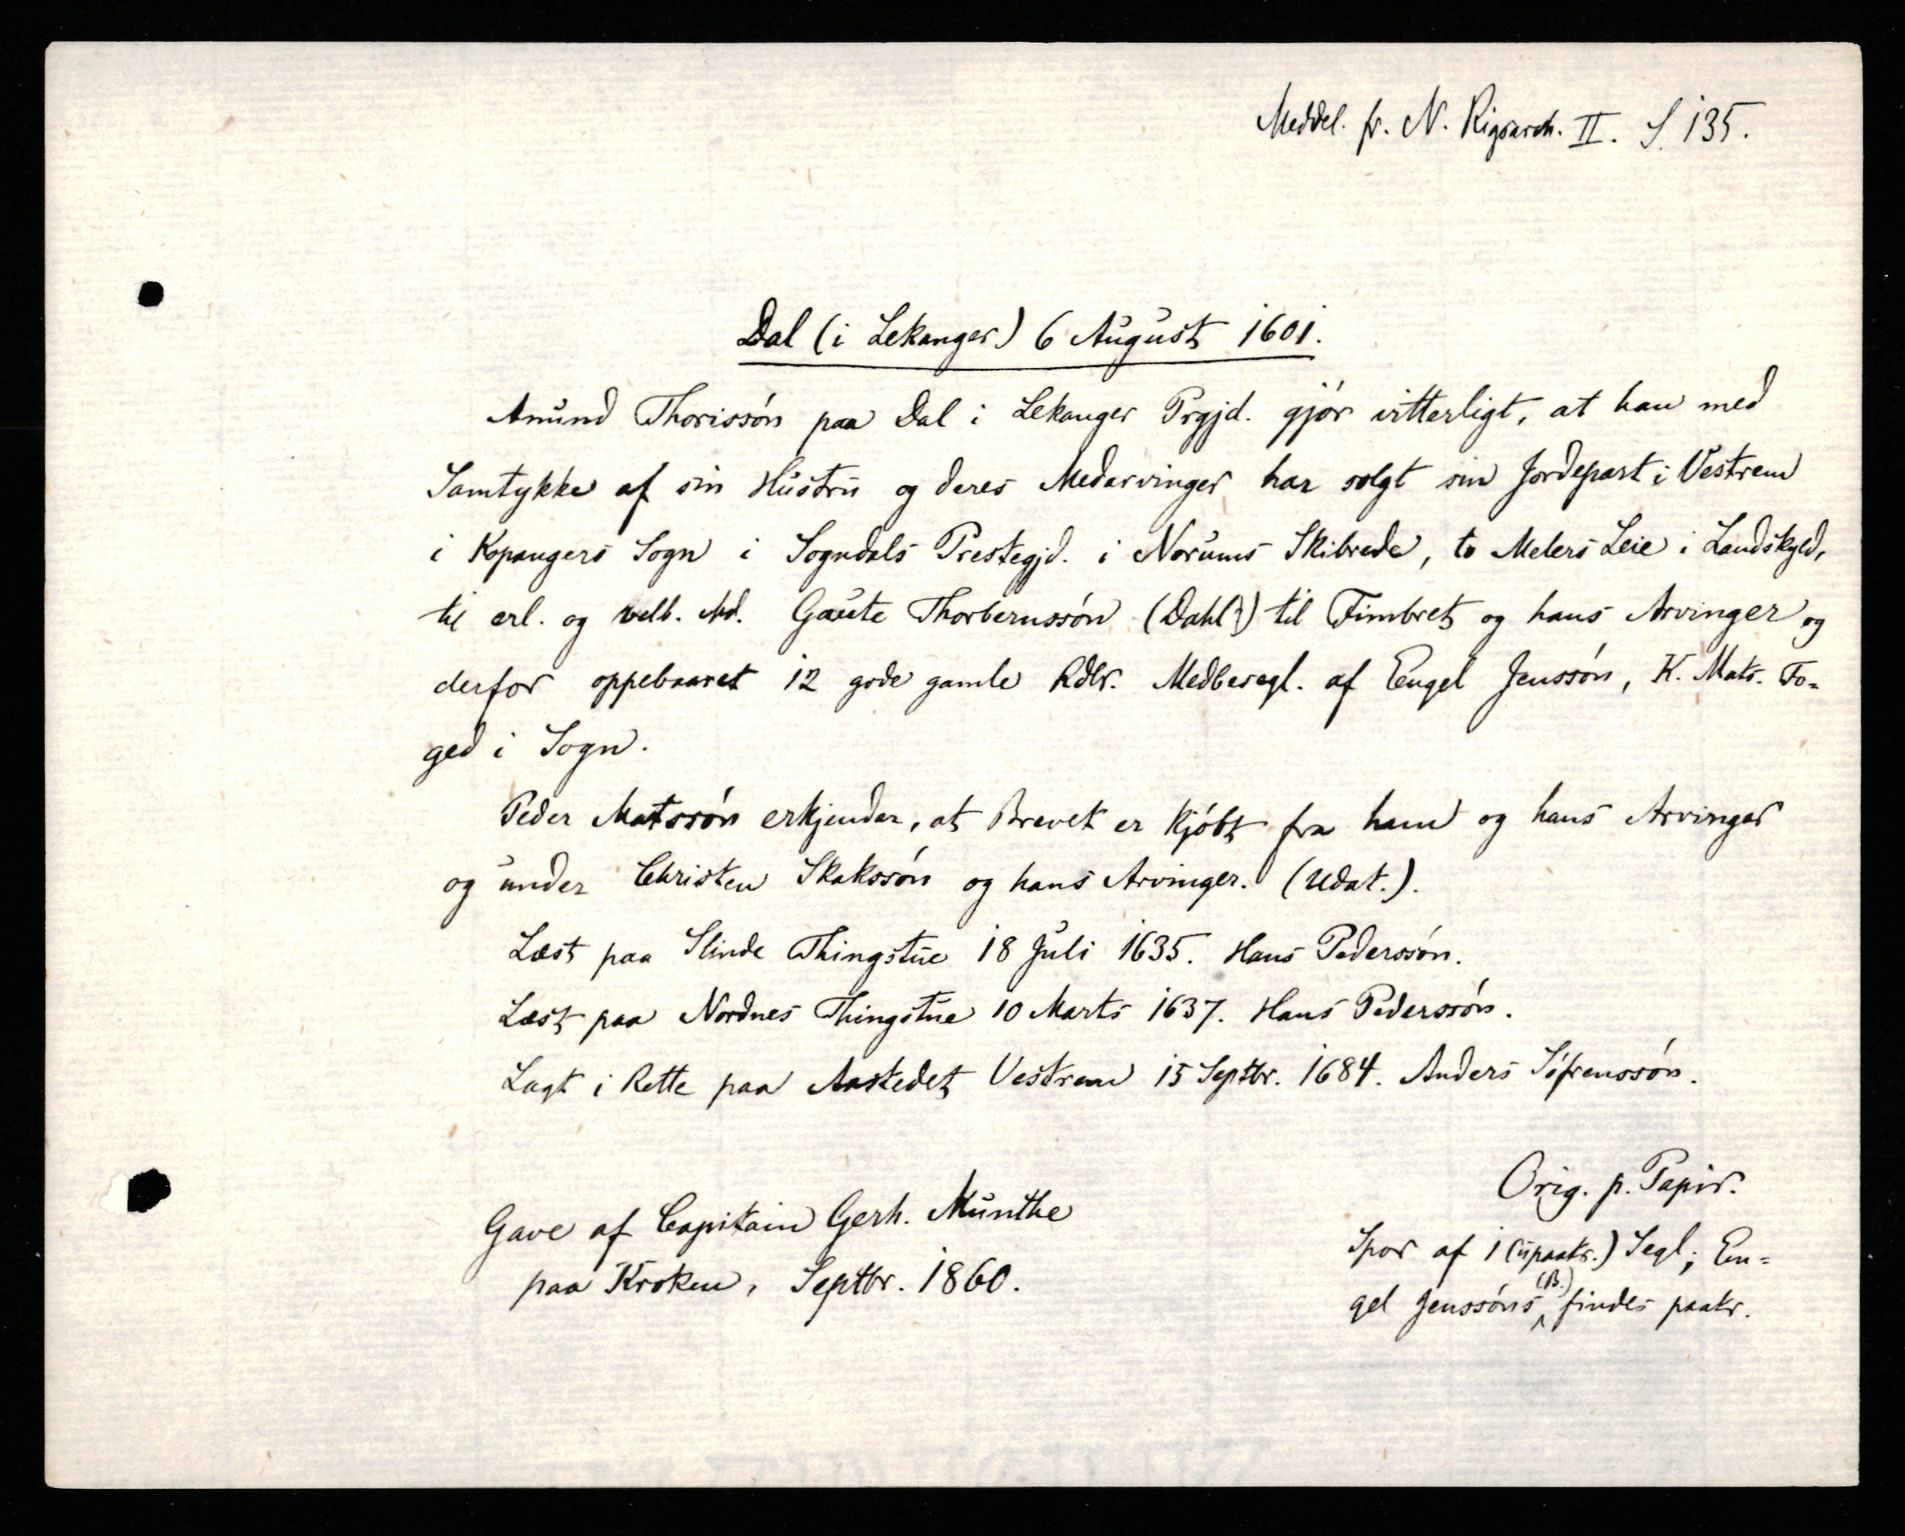 Meddel. fr. N. Rigsarch. II. S. 135.
Dal (i Lekanger) 6 August 1601.
Amund Thorissön paa Dal i Lekanger Prgjd. gjör vitterligt, at han med
Samtykke af sin Hustru og deres Medarvinger har solgt sin Jordepart i Vestrem
i Kopangers Sogn i Sogndals Prestegjd. i Norums Skibrede, to Melers Leie i Landskyld,
til erl. og velb. Md. Gaute Thorbernssön (Dahl?) til Fimbret og hans Arvinger og
derfor oppebaaret 12 gode gamle Rdlr. Medbesegl. af Engel Jenssön, K. Mats. Fo=
ged i Sogn.
Peder Matssön erkjender, at Brevet er kjöbt fra ham og hans Arvinger
og under Christen Skakssön og hans Arvinger. (Udat.).
Læst paa Slinde Thingstue 18 Juli 1635. Hans Pederssön.
Læst paa Nordnes Thingstue 10 Marts 1637. Hans Pederssön.
Lagt i Rette paa Aastedet Vestrem 15 Septbr. 1684. Anders Söfrenssön.
Orig. p. Papir.
Gave af Capitain Gerh. Munthe
paa Kroken, Septbr. 1860.
Spor af 1 (upaatr.) Segl; En=
gel Jenssöns (B.) findes paatr.